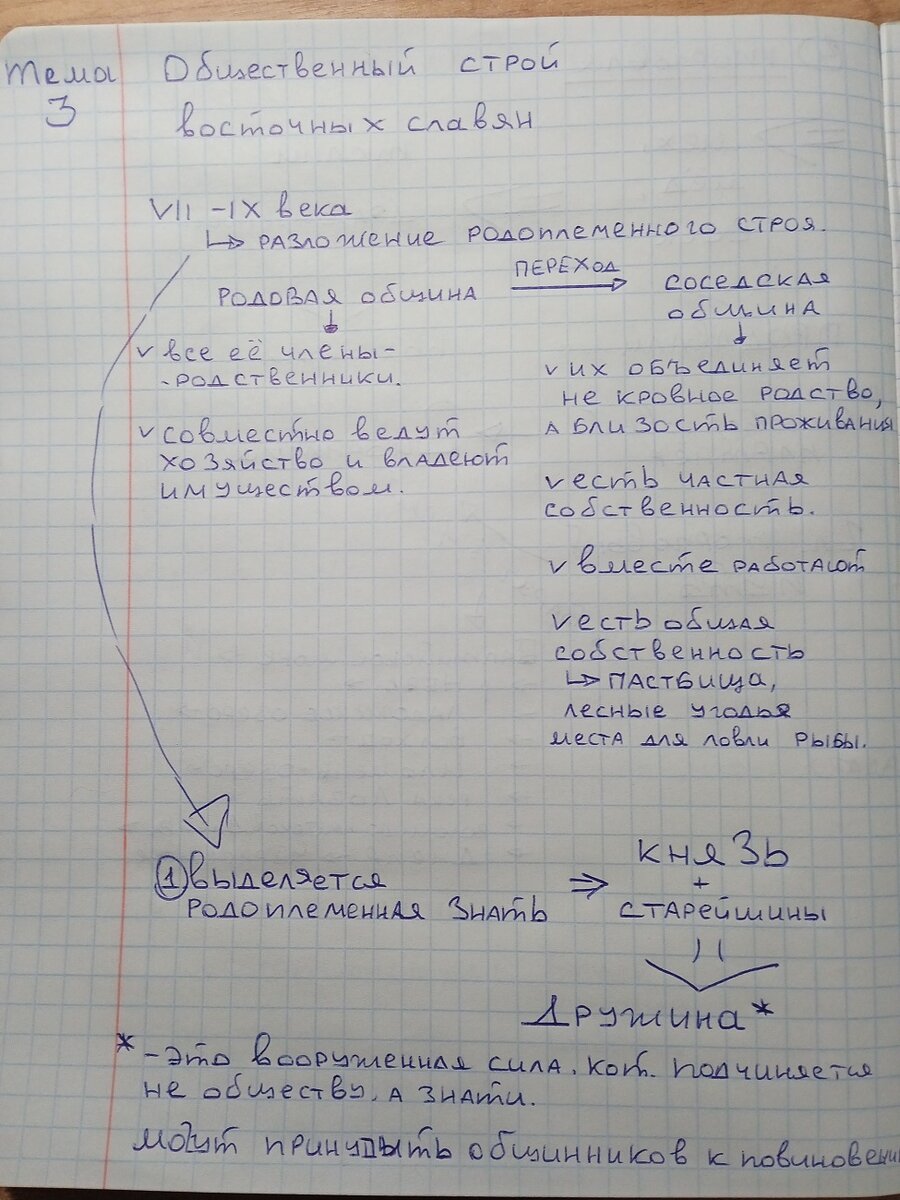 Тема Общественный строй
3
восточных славян
VII - IX века
↳ разложение родоплеменного строя.
родовая община
переход
соседская
община
✓ все её члены -
- родственники.
✓ совместно ведут
хозяйство и владеют
имуществом.
✓ их объединяет
не кровное родство,
а близость проживания
✓ есть частная
собственность.
✓ вместе работают
✓ есть общая
собственность
↳ пастбища,
лесные угодья
места для ловли рыбы.
① выделяется
родоплеменная знать ⇒
князь
+
старейшины
Дружина*
* - это вооруженная сила, кот. подчиняется
не обществу, а знати.
могут принудыть общинников к повиновени